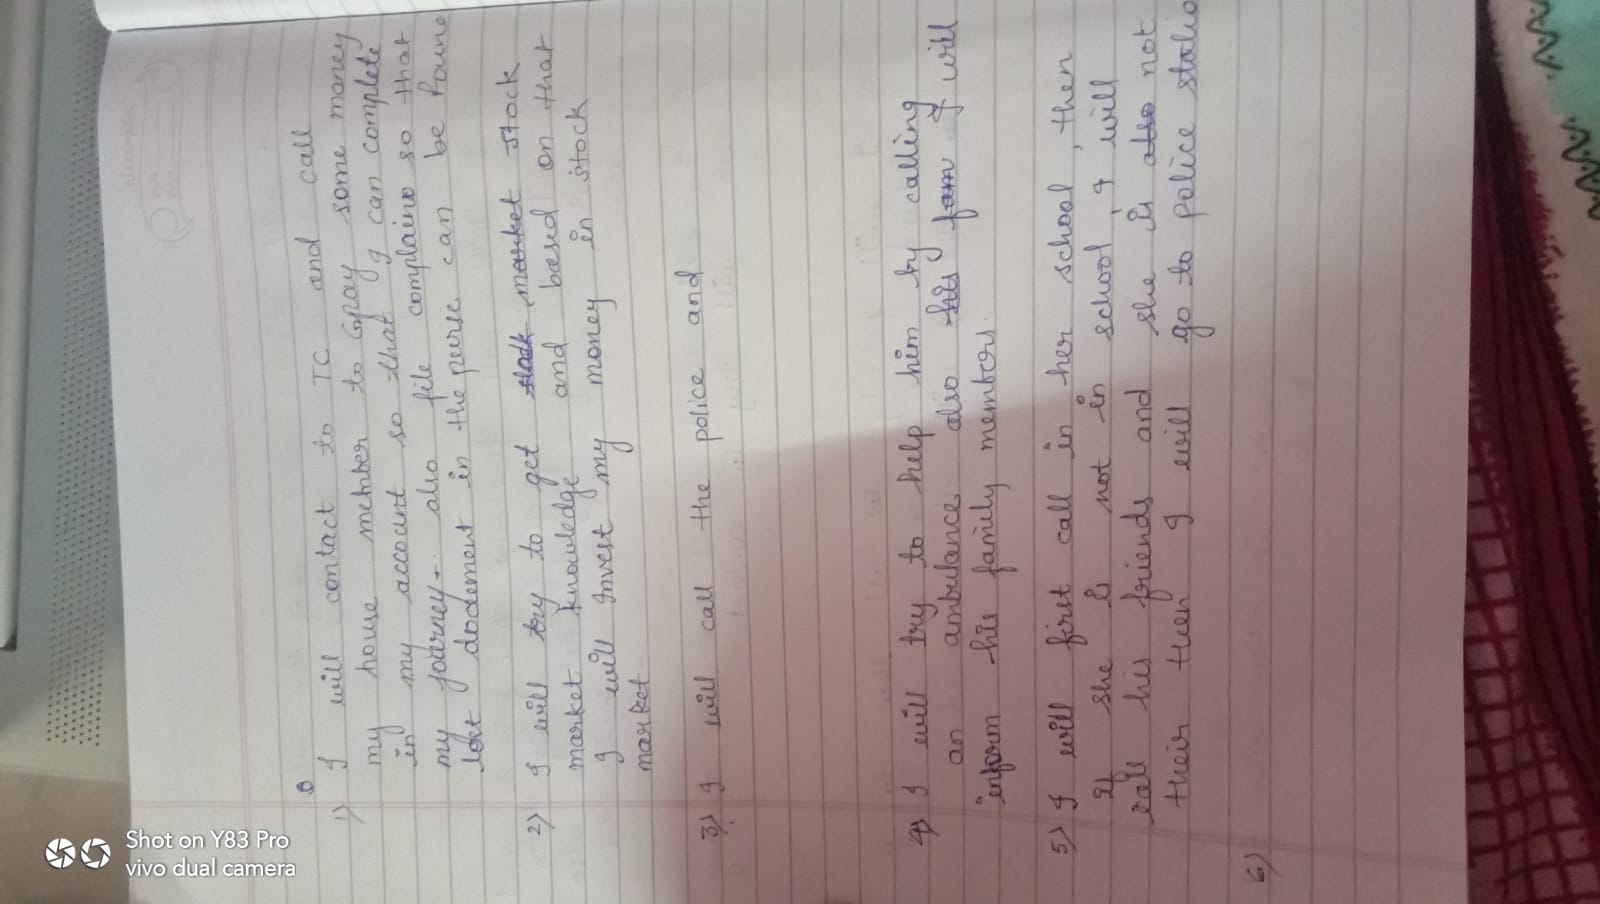 1) I will contact to TC and call
my house member to Gpay some money
in my account so that I can complete
my journey. also file complains so that
lost docement in the purse can be
2) I will try to get stock market stock
market knowledge and based on that
I will invest my money in stock
market.
3) I will call the police and
4) I will try to help him by calling
an ambulance also his fam I will
inform his family members.
5) I will first call in her school, then
If she is not in school I will
call his friends and she is also not
their then I will go to police statio
6)
Shot on Y83 Pro
vivo dual camera